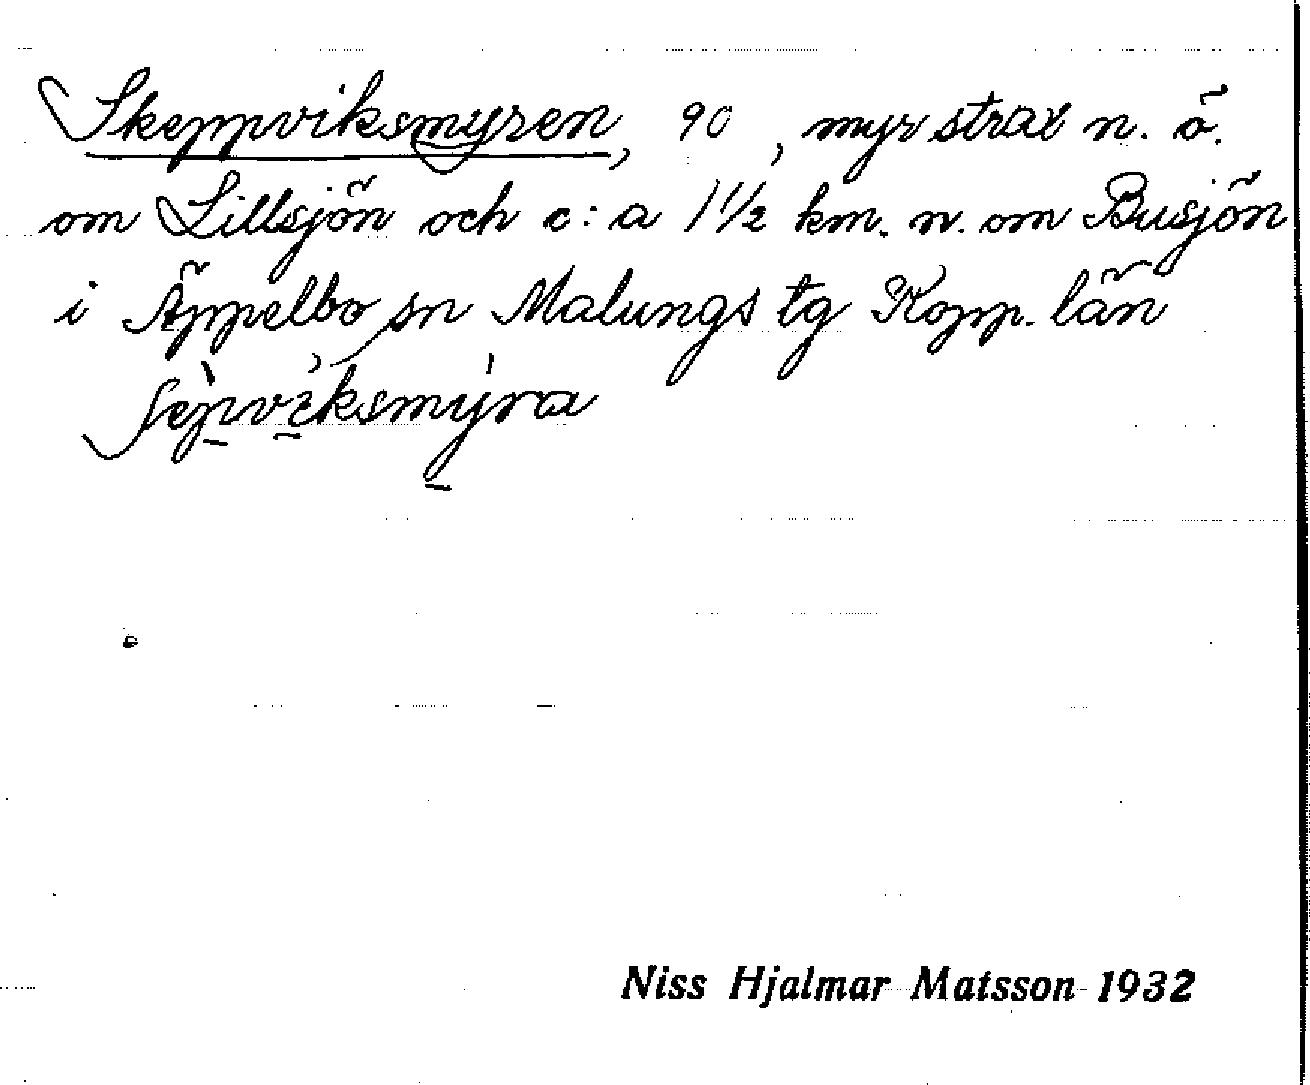 Skeppviksmyren, 90, myr strax n. ö.
om Lillsjön och c:a 1 1/2 km. n. om Busjön
i Äppelbo sn Malungs tg Kopp. län
Niss Hjalmar Matsson 1932